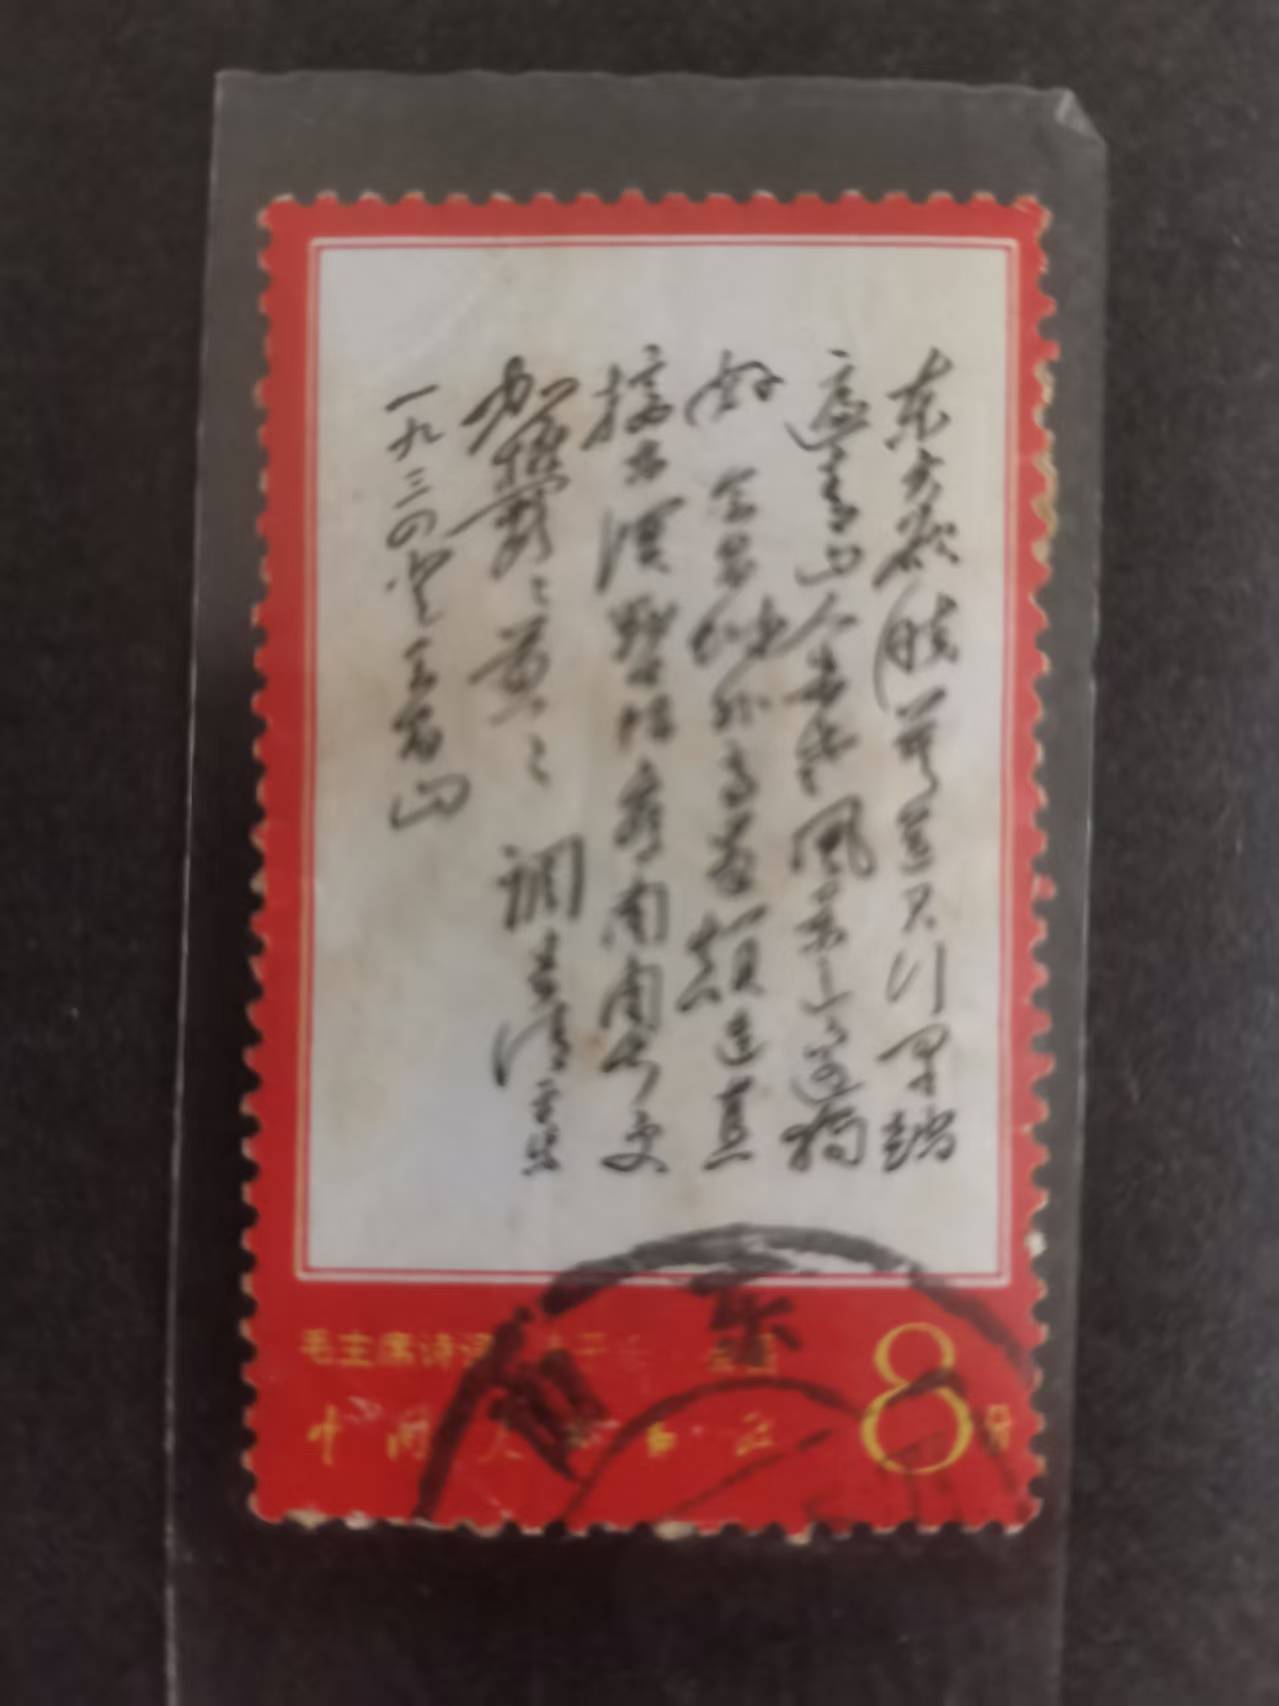 东方欲晓莫道君行早踏
遍青山人未老风景这边独
好 会昌城外高峰颠连直
接东溟战士指看南粤更
加郁〻葱〻 调寄清平乐
一九三四登会昌山
毛主席诗词
中国人民邮政
8分
东